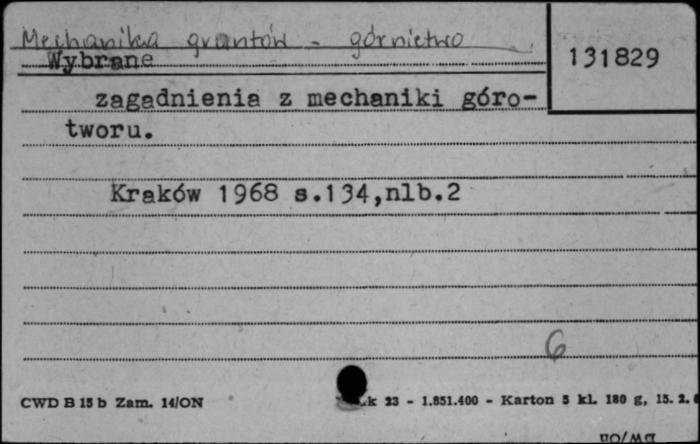 Mechanika gruntów - górnictwo
131829
Wybrane
zagadnienia z mechaniki góro-
tworu.
Kraków 1968 s.134,nlb.2
6
CWD B 15 b Zam. 14/ON
k 23 - 1.851.400 - Karton 5 kl. 180 g, 15. 2. 6